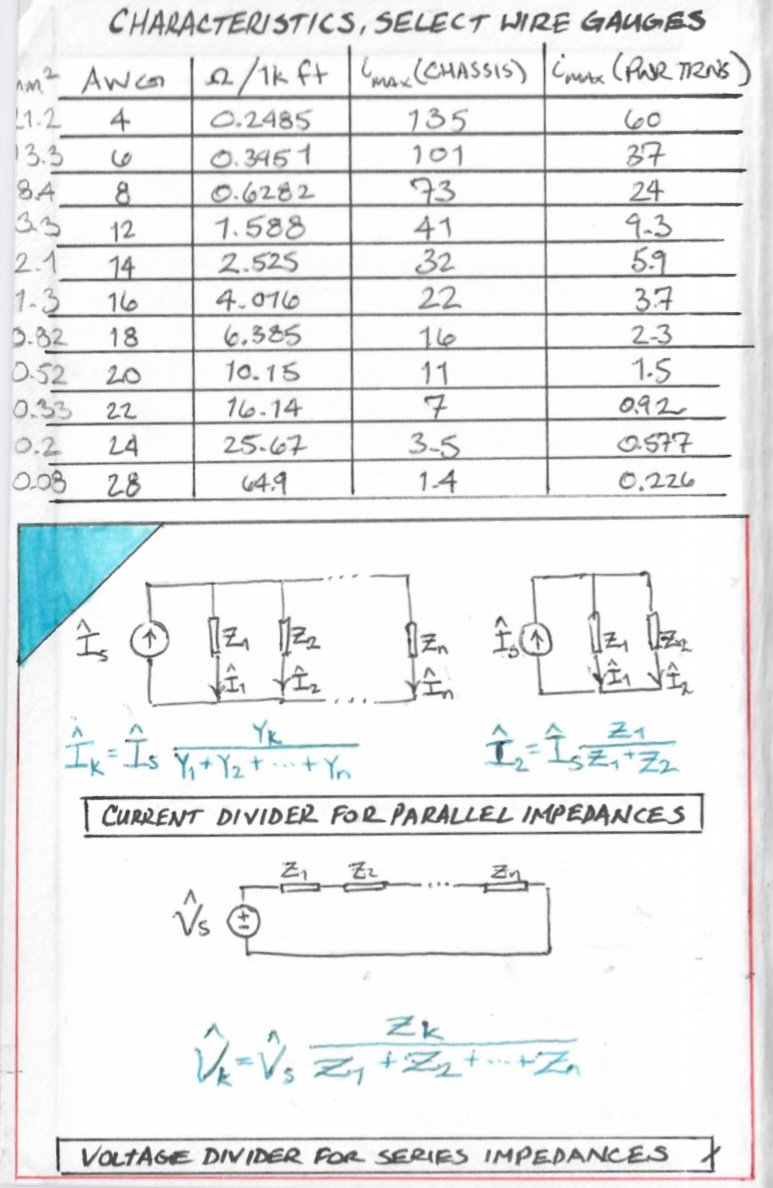 CHARACTERISTICS, SELECT WIRE GAUGES
mm² AWG Ω/1k ft iMAX (CHASSIS) iMAX (PWR TRNS)
21.2 4 0.2485 135 60
13.3 6 0.3951 101 37
8.4 8 0.6282 73 24
3.3 12 1.588 41 9.3
2.1 14 2.525 32 5.9
1.3 16 4.016 22 3.7
0.82 18 6.385 16 2.3
0.52 20 10.15 11 1.5
0.33 22 16.14 7 0.92
0.2 24 25.67 3.5 0.577
0.08 28 64.9 1.4 0.226
Îs ↑ Z1 Z2 ... Zn Îs ↑ Z1 Z2
Î1 Î2 ... În Î1 Î2
Îk = Îs Yk / (Y1 + Y2 + ... + Yn) Î2 = Îs Z1 / (Z1 + Z2)
CURRENT DIVIDER FOR PARALLEL IMPEDANCES
Z1 Z2 ... Zn
V̂s ±
V̂k = V̂s Zk / (Z1 + Z2 + ... + Zn)
VOLTAGE DIVIDER FOR SERIES IMPEDANCES